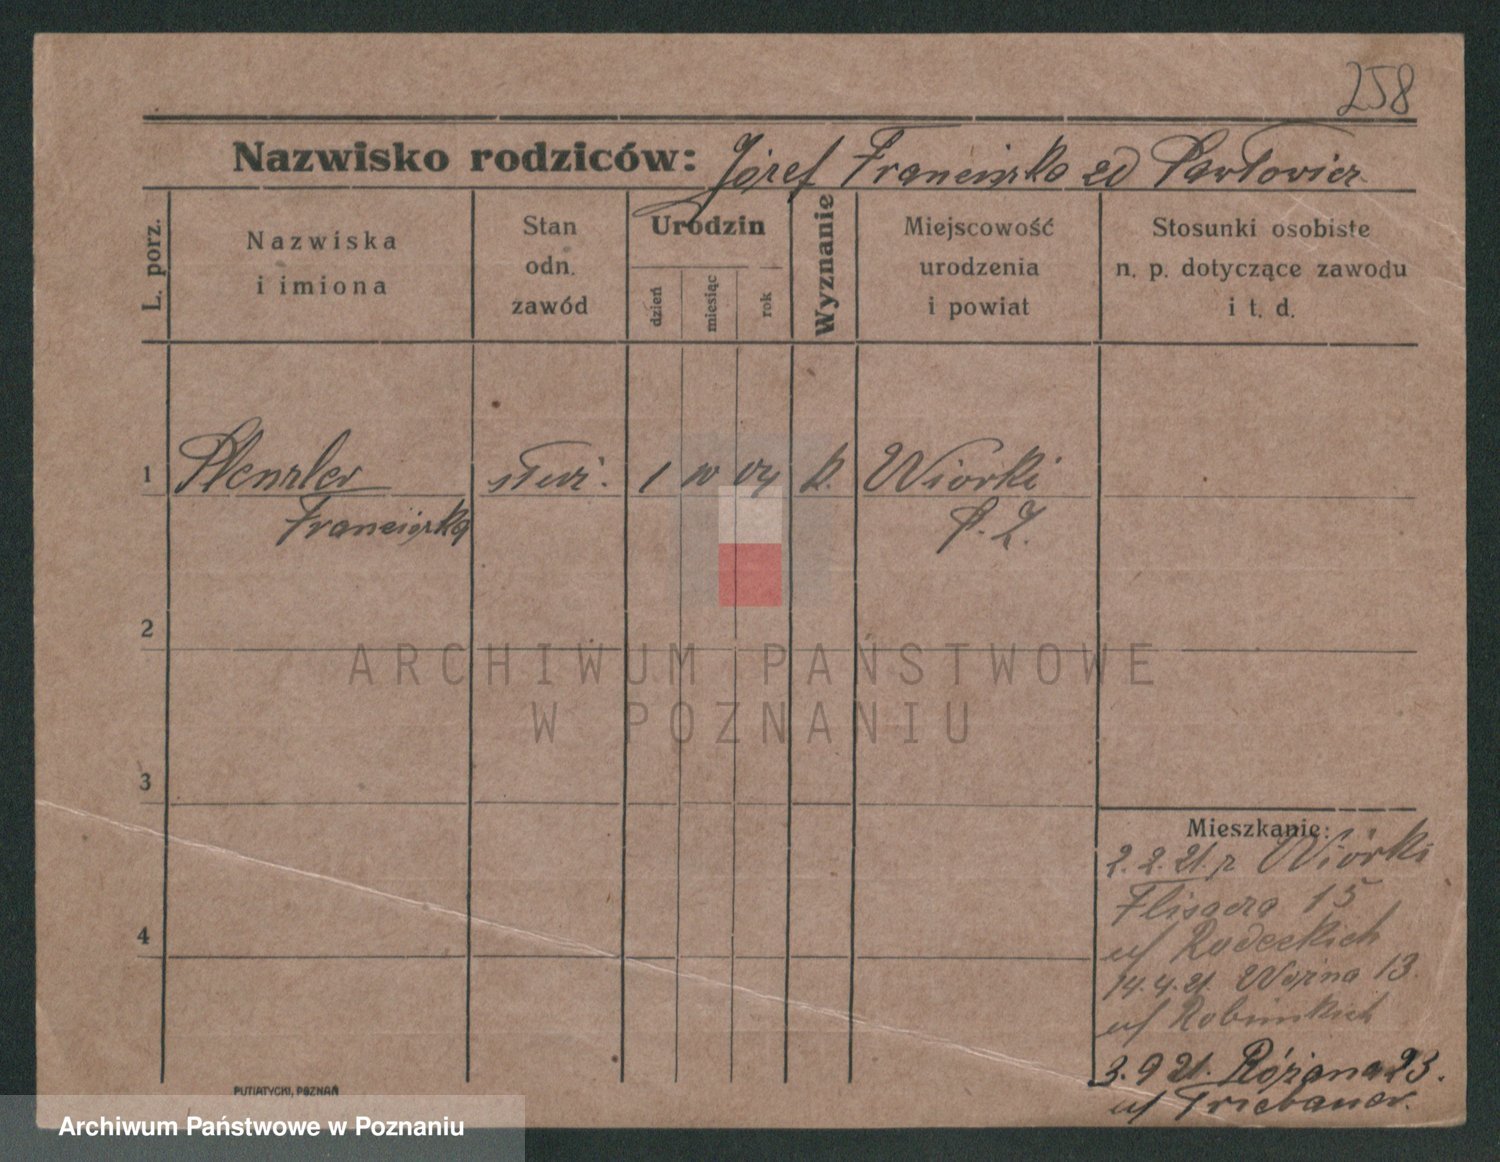 258
Nazwisko rodziców: Józef Franciszka zd Pawłowicz
L. porz.
Nazwiska
i imiona
Stan
odn.
zawód
Urodzin
dzień
miesiąc
rok
Wyznanie
Miejscowość
urodzenia
i powiat
Stosunki osobiste
n. p. dotyczące zawodu
i t. d.
1 Stenzler służ. 1 10 04 k. Wiórki
Franciszka P. Z.
2
3
4
Mieszkanie:
2.2.21. z Wiórki
Flisacza 15
u/ Rudeckich
14.4.21. Wojna 13.
u/
3.9 21. Różana 23.
u/
PUTIATYCKI, POZNAŃ
ARCHIWUM PAŃSTWOWE
W POZNANIU
Archiwum Państwowe w Poznaniu